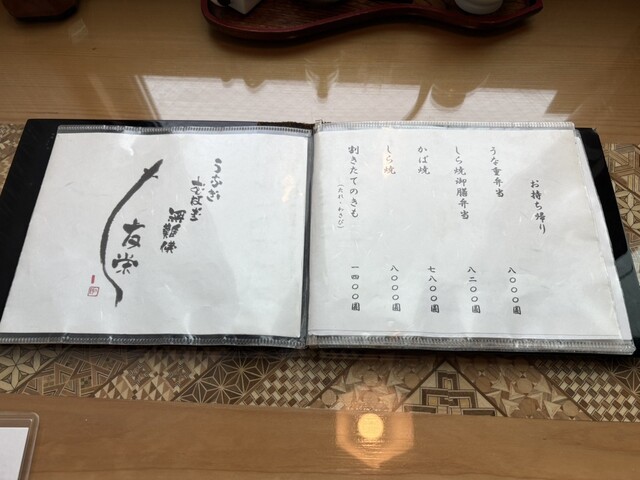 お持ち帰り
うな重弁当 八〇〇〇圓
しら焼御膳弁当 八二〇〇圓
かば焼 七八〇〇圓
しら焼 八〇〇〇圓
割きたてのきも 一四〇〇圓
(たれ・わさび)
うなぎ
友栄